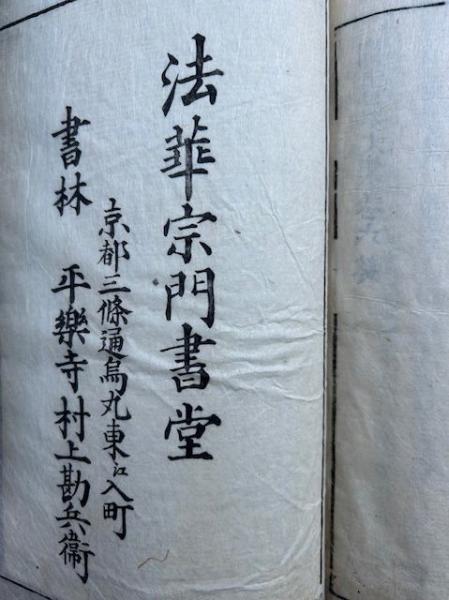 法華宗門書堂
京都三條通烏丸東江入町
書林 平樂寺村上勘兵衞